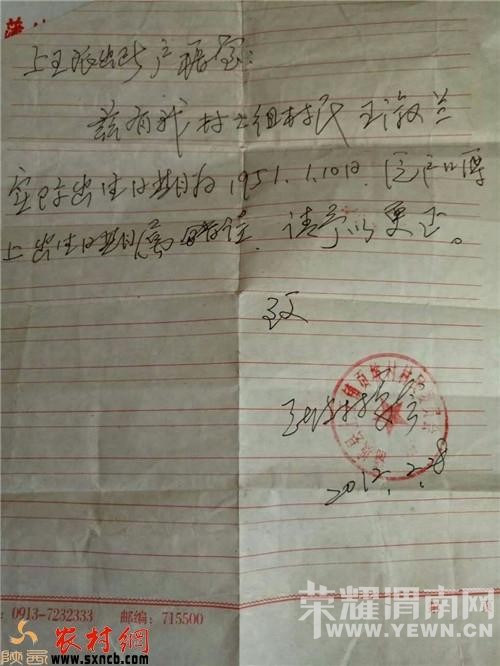 上王派出所户籍室:
兹有我村七组村民王淑兰
实际出生日期为1951.1.10日,该户口簿
上出生日期属有误,请予以更正。
致
村委会
2012.2.28
: 0913-7232333 邮编: 715500
陕西 农村網
www.sxncb.com
荣耀渭南网
WWW.YEWN.CN